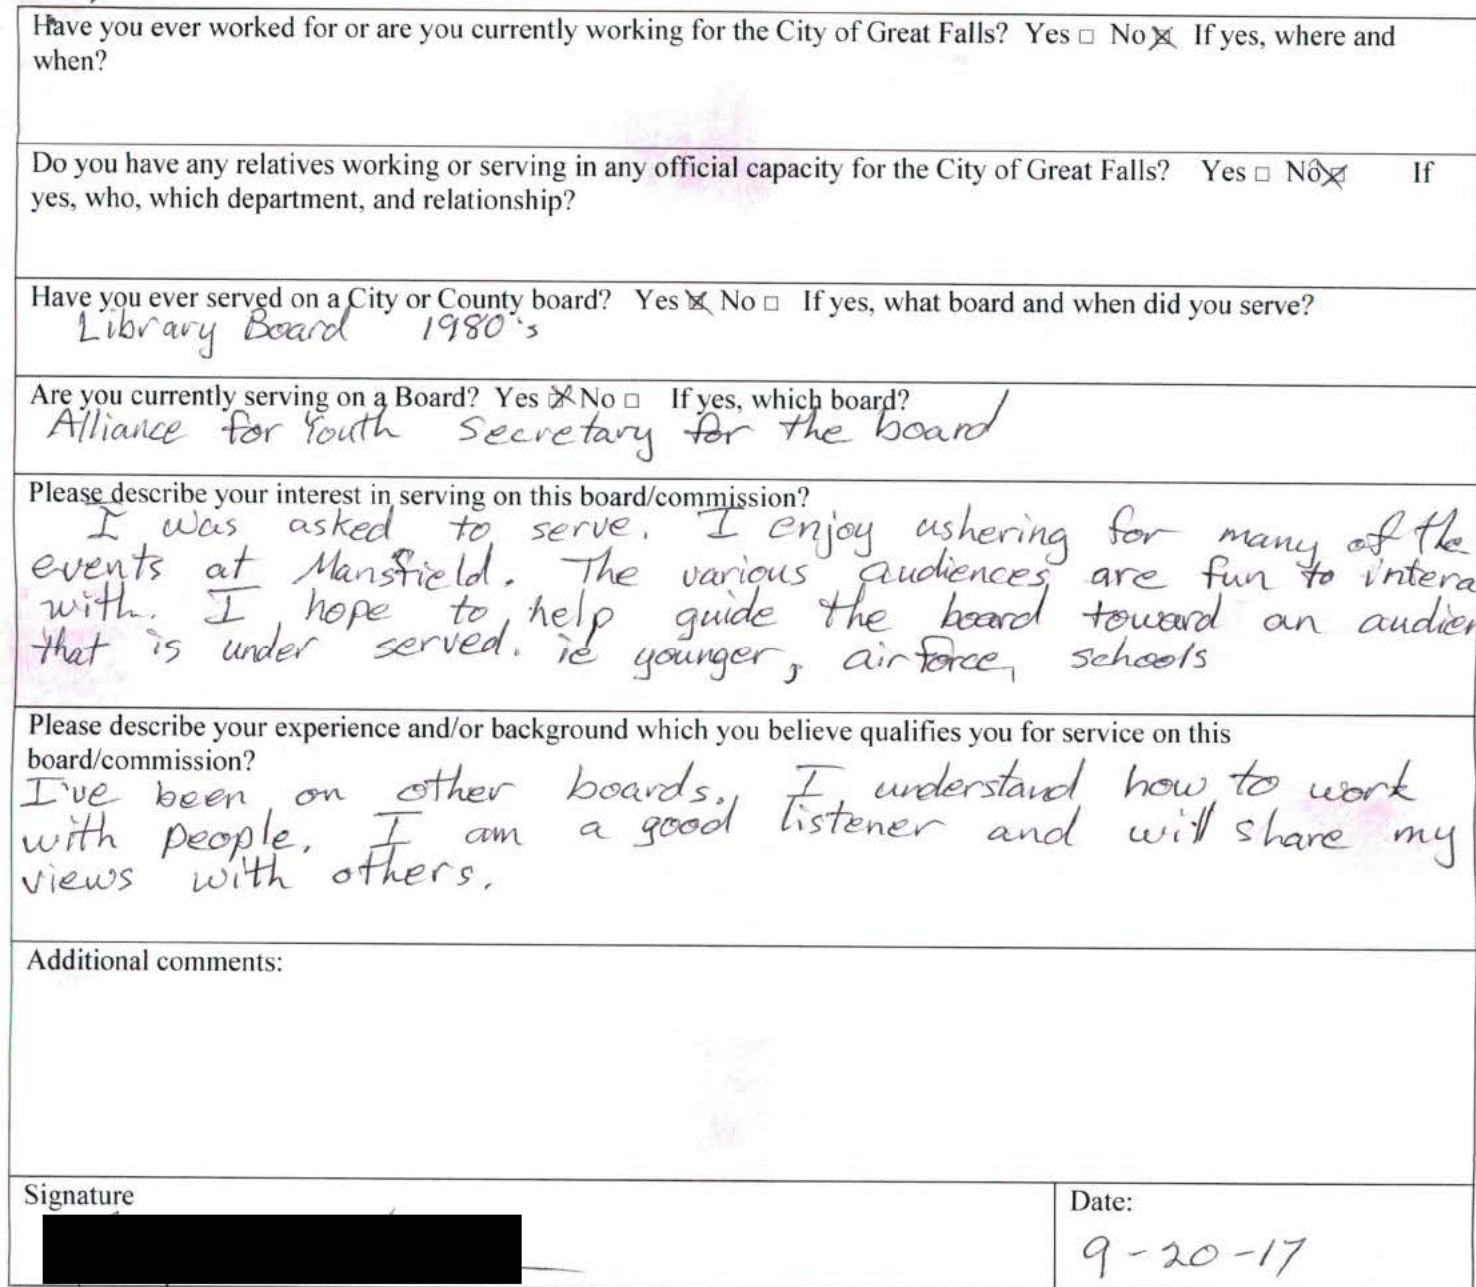 Have you ever worked for or are you currently working for the City of Great Falls? Yes □ No ☒ If yes, where and
when?
Do you have any relatives working or serving in any official capacity for the City of Great Falls? Yes □ No ☒ If
yes, who, which department, and relationship?
Have you ever served on a City or County board? Yes ☒ No □ If yes, what board and when did you serve?
Library Board 1980's
Are you currently serving on a Board? Yes ☒ No □ If yes, which board?
Alliance for Youth Secretary for the board
Please describe your interest in serving on this board/commission?
I was asked to serve. I enjoy ushering for many of the
events at Mansfield. The various audiences are fun to intera
with. I hope to help guide the board toward an audien
that is under served. ie younger, airforce, schools
Please describe your experience and/or background which you believe qualifies you for service on this
board/commission?
I've been on other boards. I understand how to work
with people. I am a good listener and will share my
views with others.
Additional comments:
Signature
Date:
9-20-17